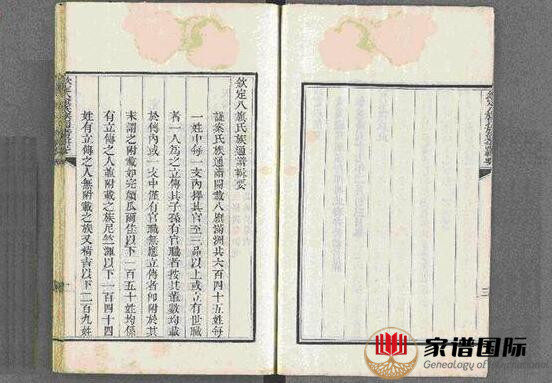 欽定八旗氏族通譜輯要
謹案氏族通譜開載八旗滿洲共六百四十五姓每
一姓中每一支內擇其官至三品以上或立有世職
者一人為之立傳其子孫有官職者按其輩數均載
於傳內或一支中僅有官職無應立傳者仰附於其
末謂之附載如完顏瓜爾佳以下一百五十姓均係
有立傳之人兼附載之族尼竺渾以下一百四十四
姓有立傳之人無附載之族叉精吉以下二百九姓
三
家谱国际
Genealogy of International